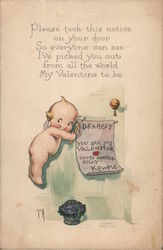 Please tack this notice
on your door
So everyone can see
I've picked you out
from all the world
My Valentine to be.
DEAREST
YOU ARE MY
VALENTINE
KEWPIE